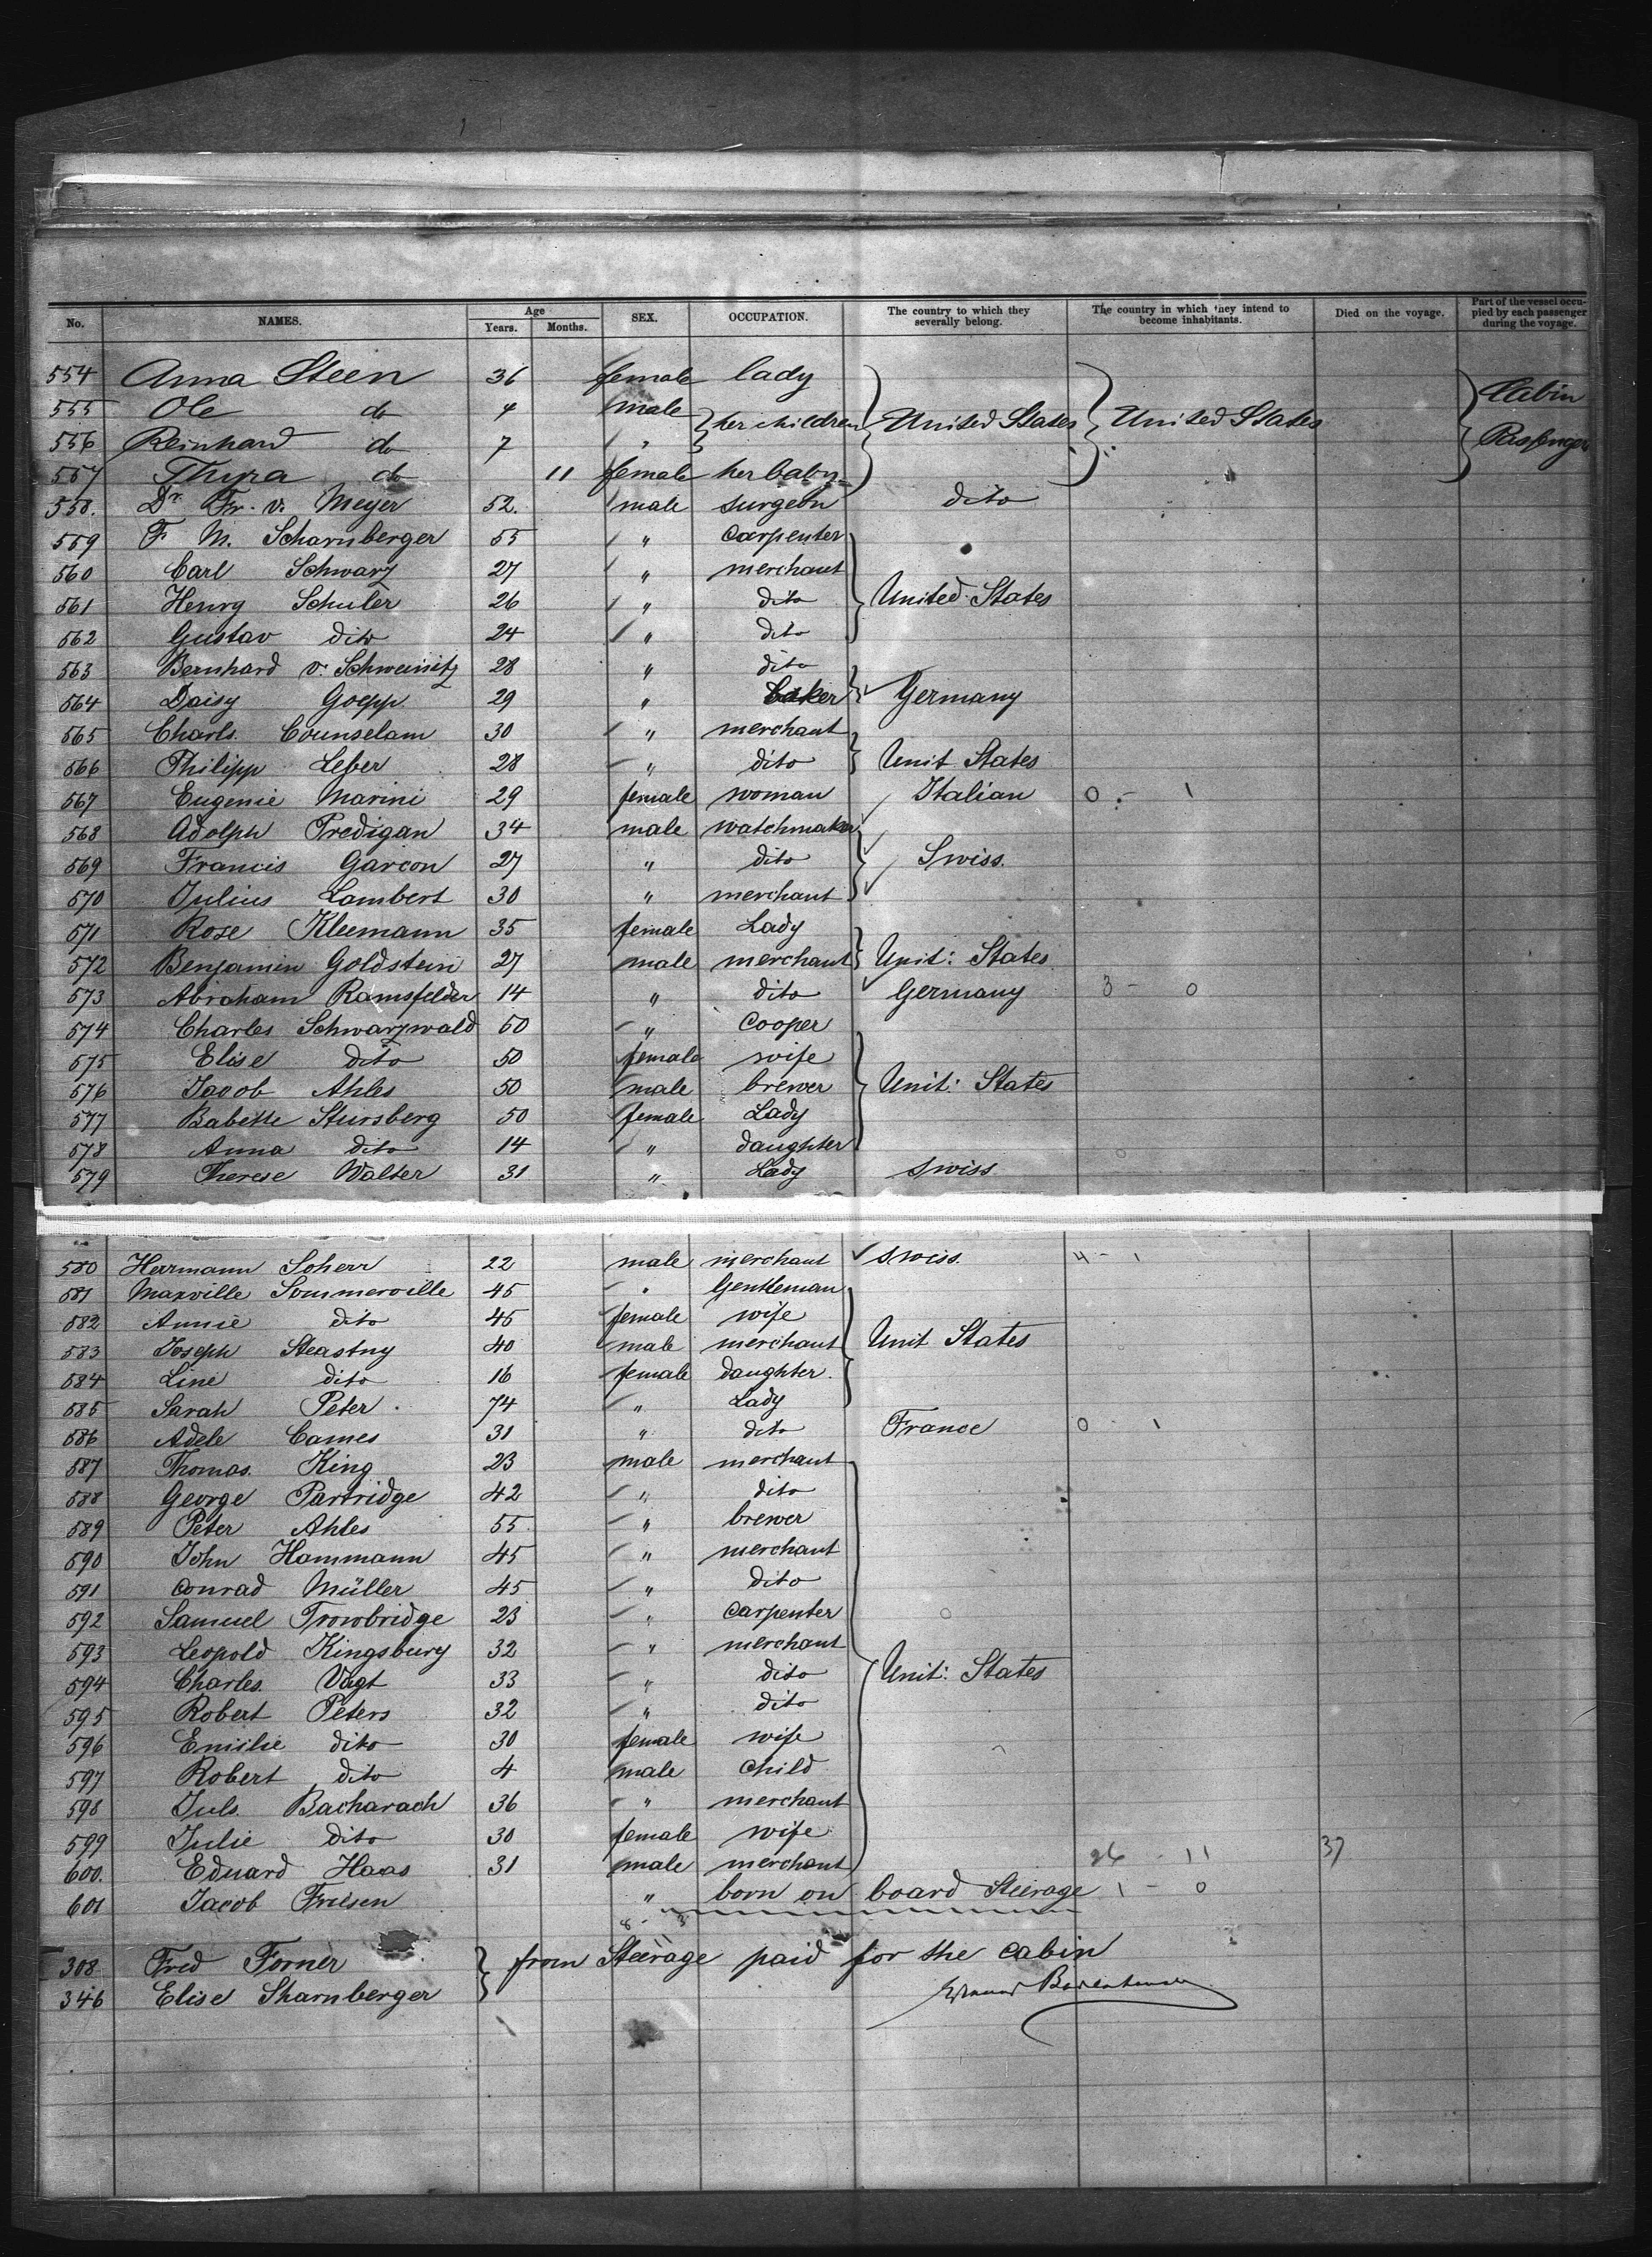 No. NAMES. Age Years. Months. SEX. OCCUPATION. The country to which they severally belong. The country in which they intend to become inhabitants. Died on the voyage. Part of the vessel occupied by each passenger during the voyage.
554 Anna Steen 36 female lady
555 Ole do 4 male her children United States United States Cabin
556 Reinhard do 7 " Passenger
557 Thyra do 11 female her baby
558. Dr. Fr. v. Meyer 52. male surgeon dito
559 F M. Scharnberger 55 " carpenter
560 Carl Schwarz 27 " merchant
561 Henry Schuler 26 " dito United States
562 Gustav dito 24 " dito
563 Bernhard v. Schweinitz 28 " dito
564 Daisy Goepp 29 " baker Germany
565 Charls. Counselam 30 " merchant
566 Philipp Leber 28 " dito Unit States
567 Eugenie Marini 29 female woman Italian 0 - 1
568 Adolph Predigan 34 male watchmaker
569 Francis Garcon 27 " dito Swiss.
570 Julius Lambert 30 " merchant
571 Rose Kleemann 35 female Lady
572 Benjamin Goldstein 27 male merchant Unit: States
573 Abraham Ramsfelder 14 " dito Germany 3 - 0
574 Charles Schwarzwald 50 " Cooper
575 Elise dito 50 female wife
576 Jacob Ahles 50 male brewer Unit: States
577 Babette Stursberg 50 female Lady
578 Anna dito 14 " daughter
579 Therese Walter 31 " Lady swiss
580 Herrmann Soherr 22 male merchant swiss. 4 - 1
581 Maxville Sommerville 45 " Gentleman
582 Annie dito 45 female wife
583 Joseph Steastny 40 male merchant Unit States
584 Line dito 16 female daughter.
585 Sarah Peter 74 " Lady
586 Adele Cames 31 " dito France 0 - 1
587 Thomas. King 23 male merchant
588 George Partridge 42 " dito
589 Peter Ahles 55 " brewer
590 John Hammann 45 " merchant
591 Conrad Müller 45 " dito
592 Samuel Trowbridge 23 " Carpenter
593 Leopold Kingsbury 32 " merchant
594 Charles. Vagt 33 " dito Unit: States
595 Robert Peters 32 " dito
596 Emilie dito 30 female wife
597 Robert dito 4 male Child
598 Juls. Bacharach 36 " merchant
599 Julie dito 30 female wife
600. Eduard Haas 31 male merchant 26 - 11 37
601 Jacob Friesen " born on board Steerage 1 - 0
308 Fred Forner from Steerage paid for the cabin
346 Elise Sharnberger